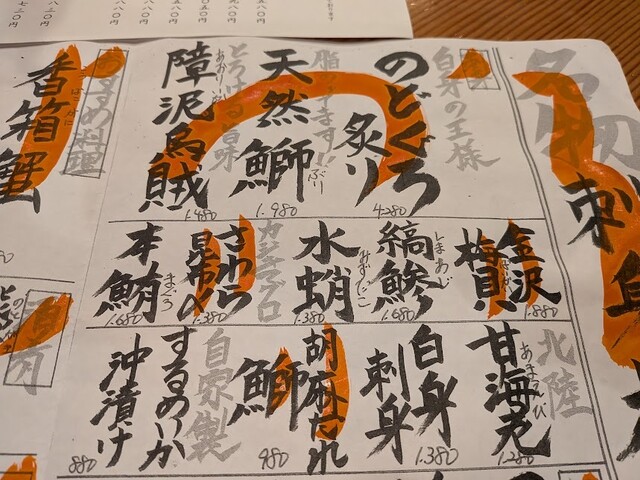 名物
刺身
白身の王様
のどぐろ
炙り
4.280
脂のってます!!
天然鰤
ぶり
1.980
とろける旨味
障泥烏賊
あおりいか
1.480
おすすめ料理
香箱蟹
こばこがに
金沢
梅貝
1.880
縞鯵
しまあじ
1.680
水蛸
みずだこ
1.380
カジキマグロ
さわら
昆布〆
1.380
本鮪
まぐろ
1.680
北陸
甘海老
あまえび
1.280
白身
刺身
1.380
胡麻だれ
鰤
980
自家製
するめいか
沖漬け
880